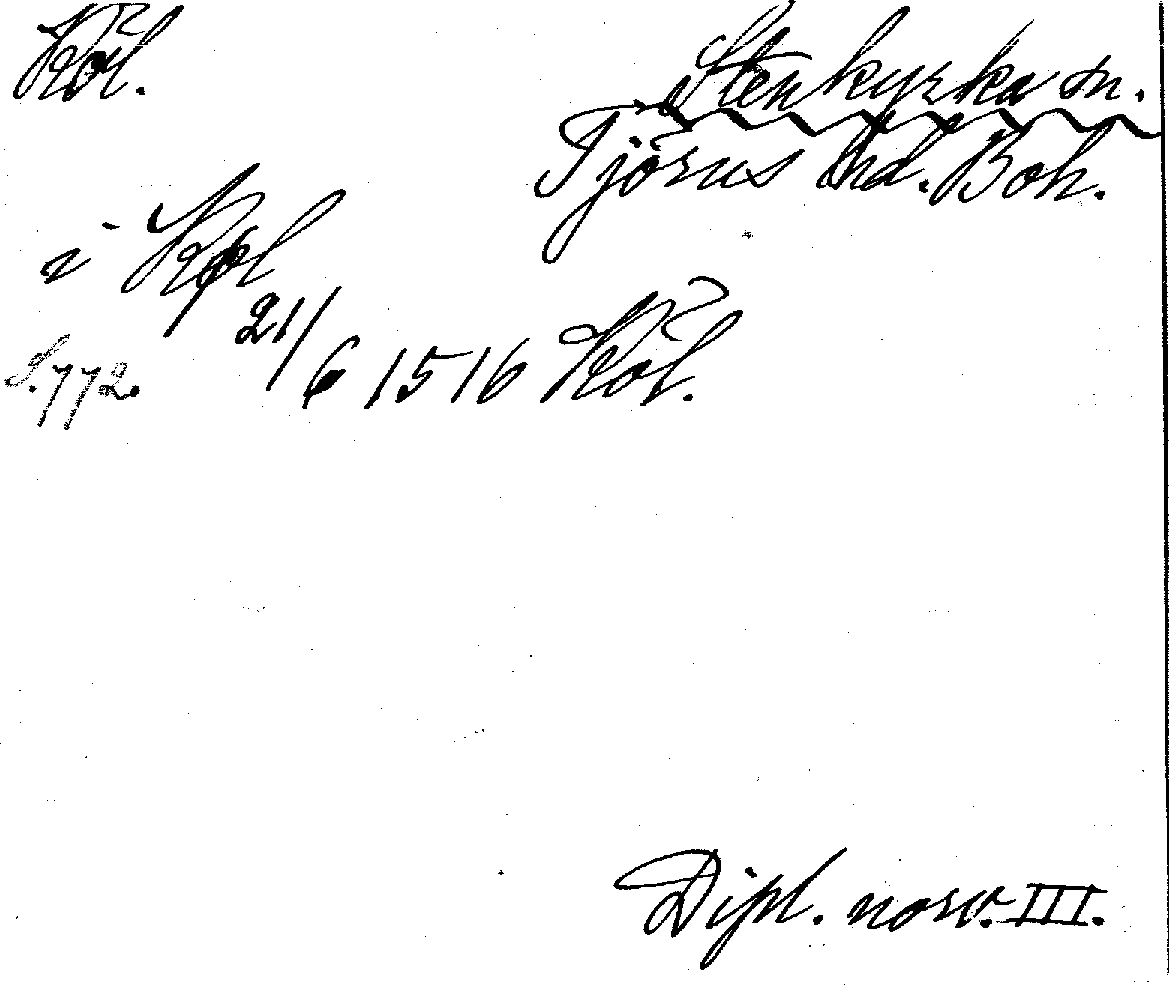 Köl.
Stenkyrka sn.
Tjörns hd. Boh.
i Køl
21/6 1516 Köl.
S. 772.
Dipl. norv. III.